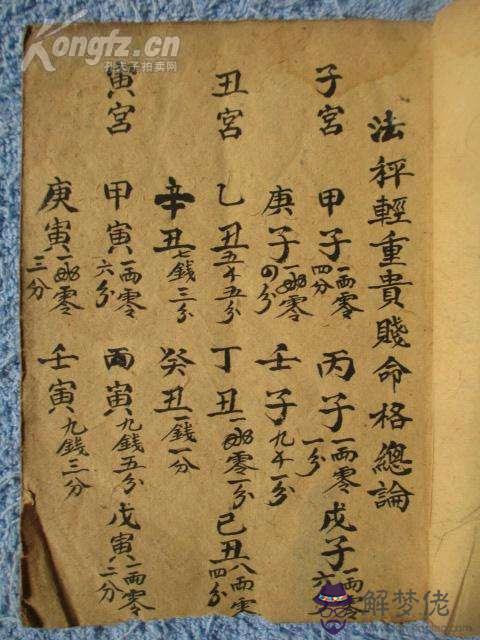 Kongfz.cn
孔夫子拍卖网
法秤輕重貴賤命格總論
子宮 甲子一両零四分 丙子一両零一分 戊子一両零六
庚子一両零四分 壬子九千一分
丑宮 乙丑五千五分 丁丑一両零一分 己丑八両零四分
辛丑七錢三分 癸丑一錢一分
寅宮 甲寅一両零六分 丙寅九錢五分 戊寅一両零二分
庚寅一両零三分 壬寅九錢三分
解梦佬